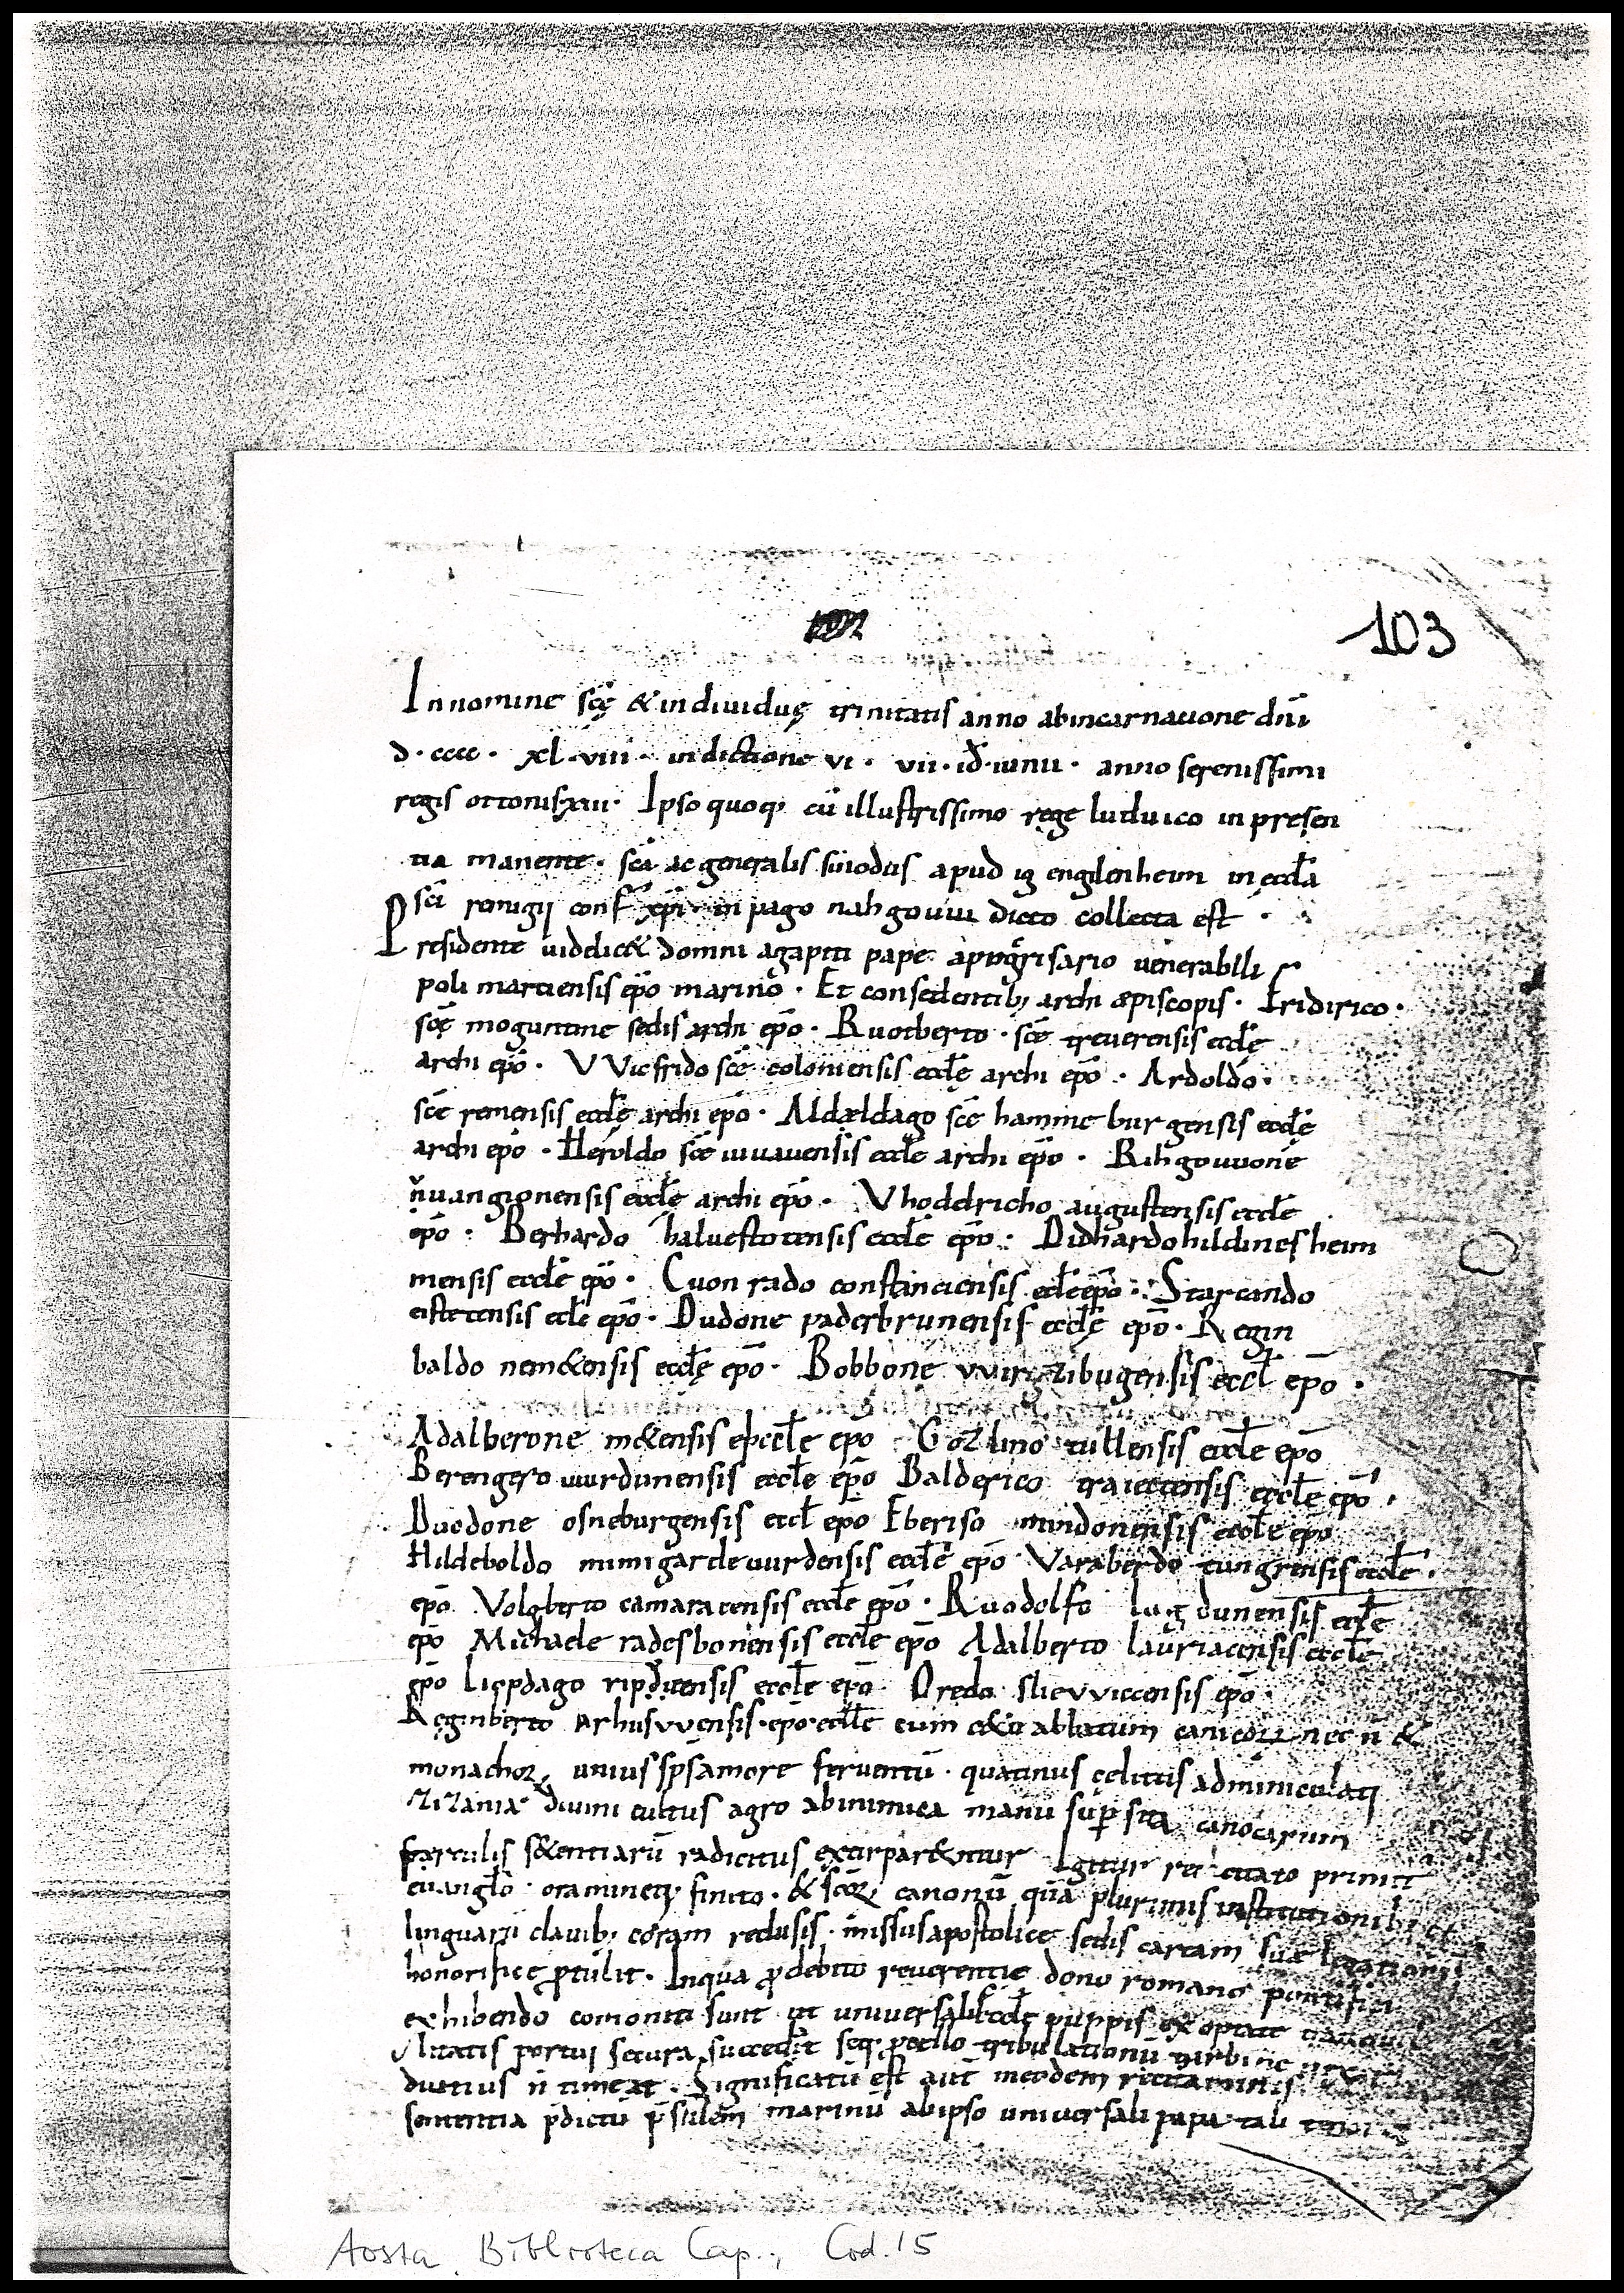 103
In nomine scę & individuę trinitatis anno abincarnatione dn̄i
d·cccc· xl·viii· indictione vi· vii·id̄·iunii· anno serenissimi
regis ottonis xiii· Ipso quoq; cū illustrissimo rege luduico in presen
tia manente· scā ac generalis sinodus apud ig engilenheim in eccl̄a
sc̄i remigii conf xp̄i in pago nahgouui dicto collecta est·
Presidente uidelic& domni agapiti pape venerabili
poli martiensis ep̄o marino· Et consedentib; archi aepiscopis· Fridirico·
scę moguntine sedis archi ep̄o· Ruotberto· sc̄e treuerensis eccl̄ę
archi ep̄o· VVicfrido sc̄e coloniensis eccl̄ę archi ep̄o· Ardoldo·
sc̄e remensis eccl̄ę archi epo· Aldældago sc̄e hamme burgensis eccl̄ę
archi epo· Heroldo sc̄e iuuauensis eccl̄e archi ep̄o· Rihgouuone
uuangionensis eccl̄ę archi ep̄o· Vhodelricho augustensis eccl̄e
ep̄o· Berhardo halvestotensis eccl̄e ep̄o· Didhardo hildinesheim
mensis eccl̄e ep̄o· Cuonrado constanciensis ecl̄e ep̄o· Starcando
eistetensis ecl̄e ep̄o· Dudone paderbrunensis eccl̄ę ep̄o· Regin
baldo nem&ensis eccl̄ę ep̄o· Bobbone vvirzibugensis eccl̄ ep̄o·
Adalberone m&ensis eccl̄e epo Gozlino tullensis eccl̄e ep̄o
Berengero uurdunensis eccl̄e ep̄o Balderico traiectensis eccl̄e ep̄o·
Duodone osneburgensis eccl̄ ep̄o Eberiso mindonensis eccl̄e ep̄o
Hildeboldo mimigardeuurdensis eccl̄e ep̄o Varaberdo tungrensis eccl̄e·
ep̄o Volgberto camaracensis eccl̄e ep̄o· Ruodolfo lugdunensis eccl̄e
ep̄o Michaele radesbonensis eccl̄e ep̄o Adalberto lauriacensis eccl̄e
ep̄o lioppdago eccl̄e ep̄o Oredo slievviccensis ep̄o·
Reginberto arhusvvensis·epo·eccl̄e cum nec n̄ &
monachoꝝ unius sp̄s amore ferventū· quatinus cęlitus adminiculati
zizania divini cultus agro abinimica manu sup sita canocarum
sarculis s&entiarū radicitus extirpar&ntur Igitur recitato primit
euanglō· oramineq; finito· & sc̄oꝝ canonū quā plurimis institutionib; et
linguarū clauib; coram reclusis· missus apostolice sedis cartam suæ legationis
honorifice p̄tulit· Inqua p̄ debito reuerentię dono romano pontifici
exhibendo comoniti sunt ut universalis eccl̄e puppis
litatis portui secura succed̄it seq; procllo tribulationū turbine
diutius n̄ timeat· Significatū est aut̄ ineodem recitaminis
sententia p̄dictū p̄sulem marinū abipso universali papa tali
Aosta, Biblioteca Cap., Cod. 15